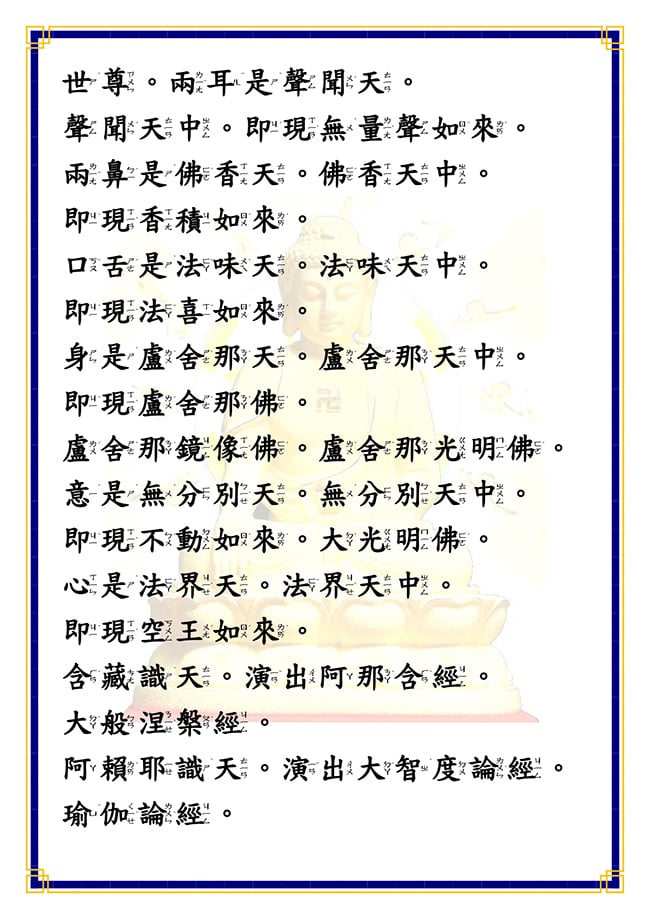 世尊。兩耳是聲聞天。
聲聞天中。即現無量聲如來。
兩鼻是佛香天。佛香天中。
即現香積如來。
口舌是法味天。法味天中。
即現法喜如來。
身是盧舍那天。盧舍那天中。
即現盧舍那佛。
盧舍那鏡像佛。盧舍那光明佛。
意是無分別天。無分別天中。
即現不動如來。大光明佛。
心是法界天。法界天中。
即現空王如來。
含藏識天。演出阿那含經。
大般涅槃經。
阿賴耶識天。演出大智度論經。
瑜伽論經。